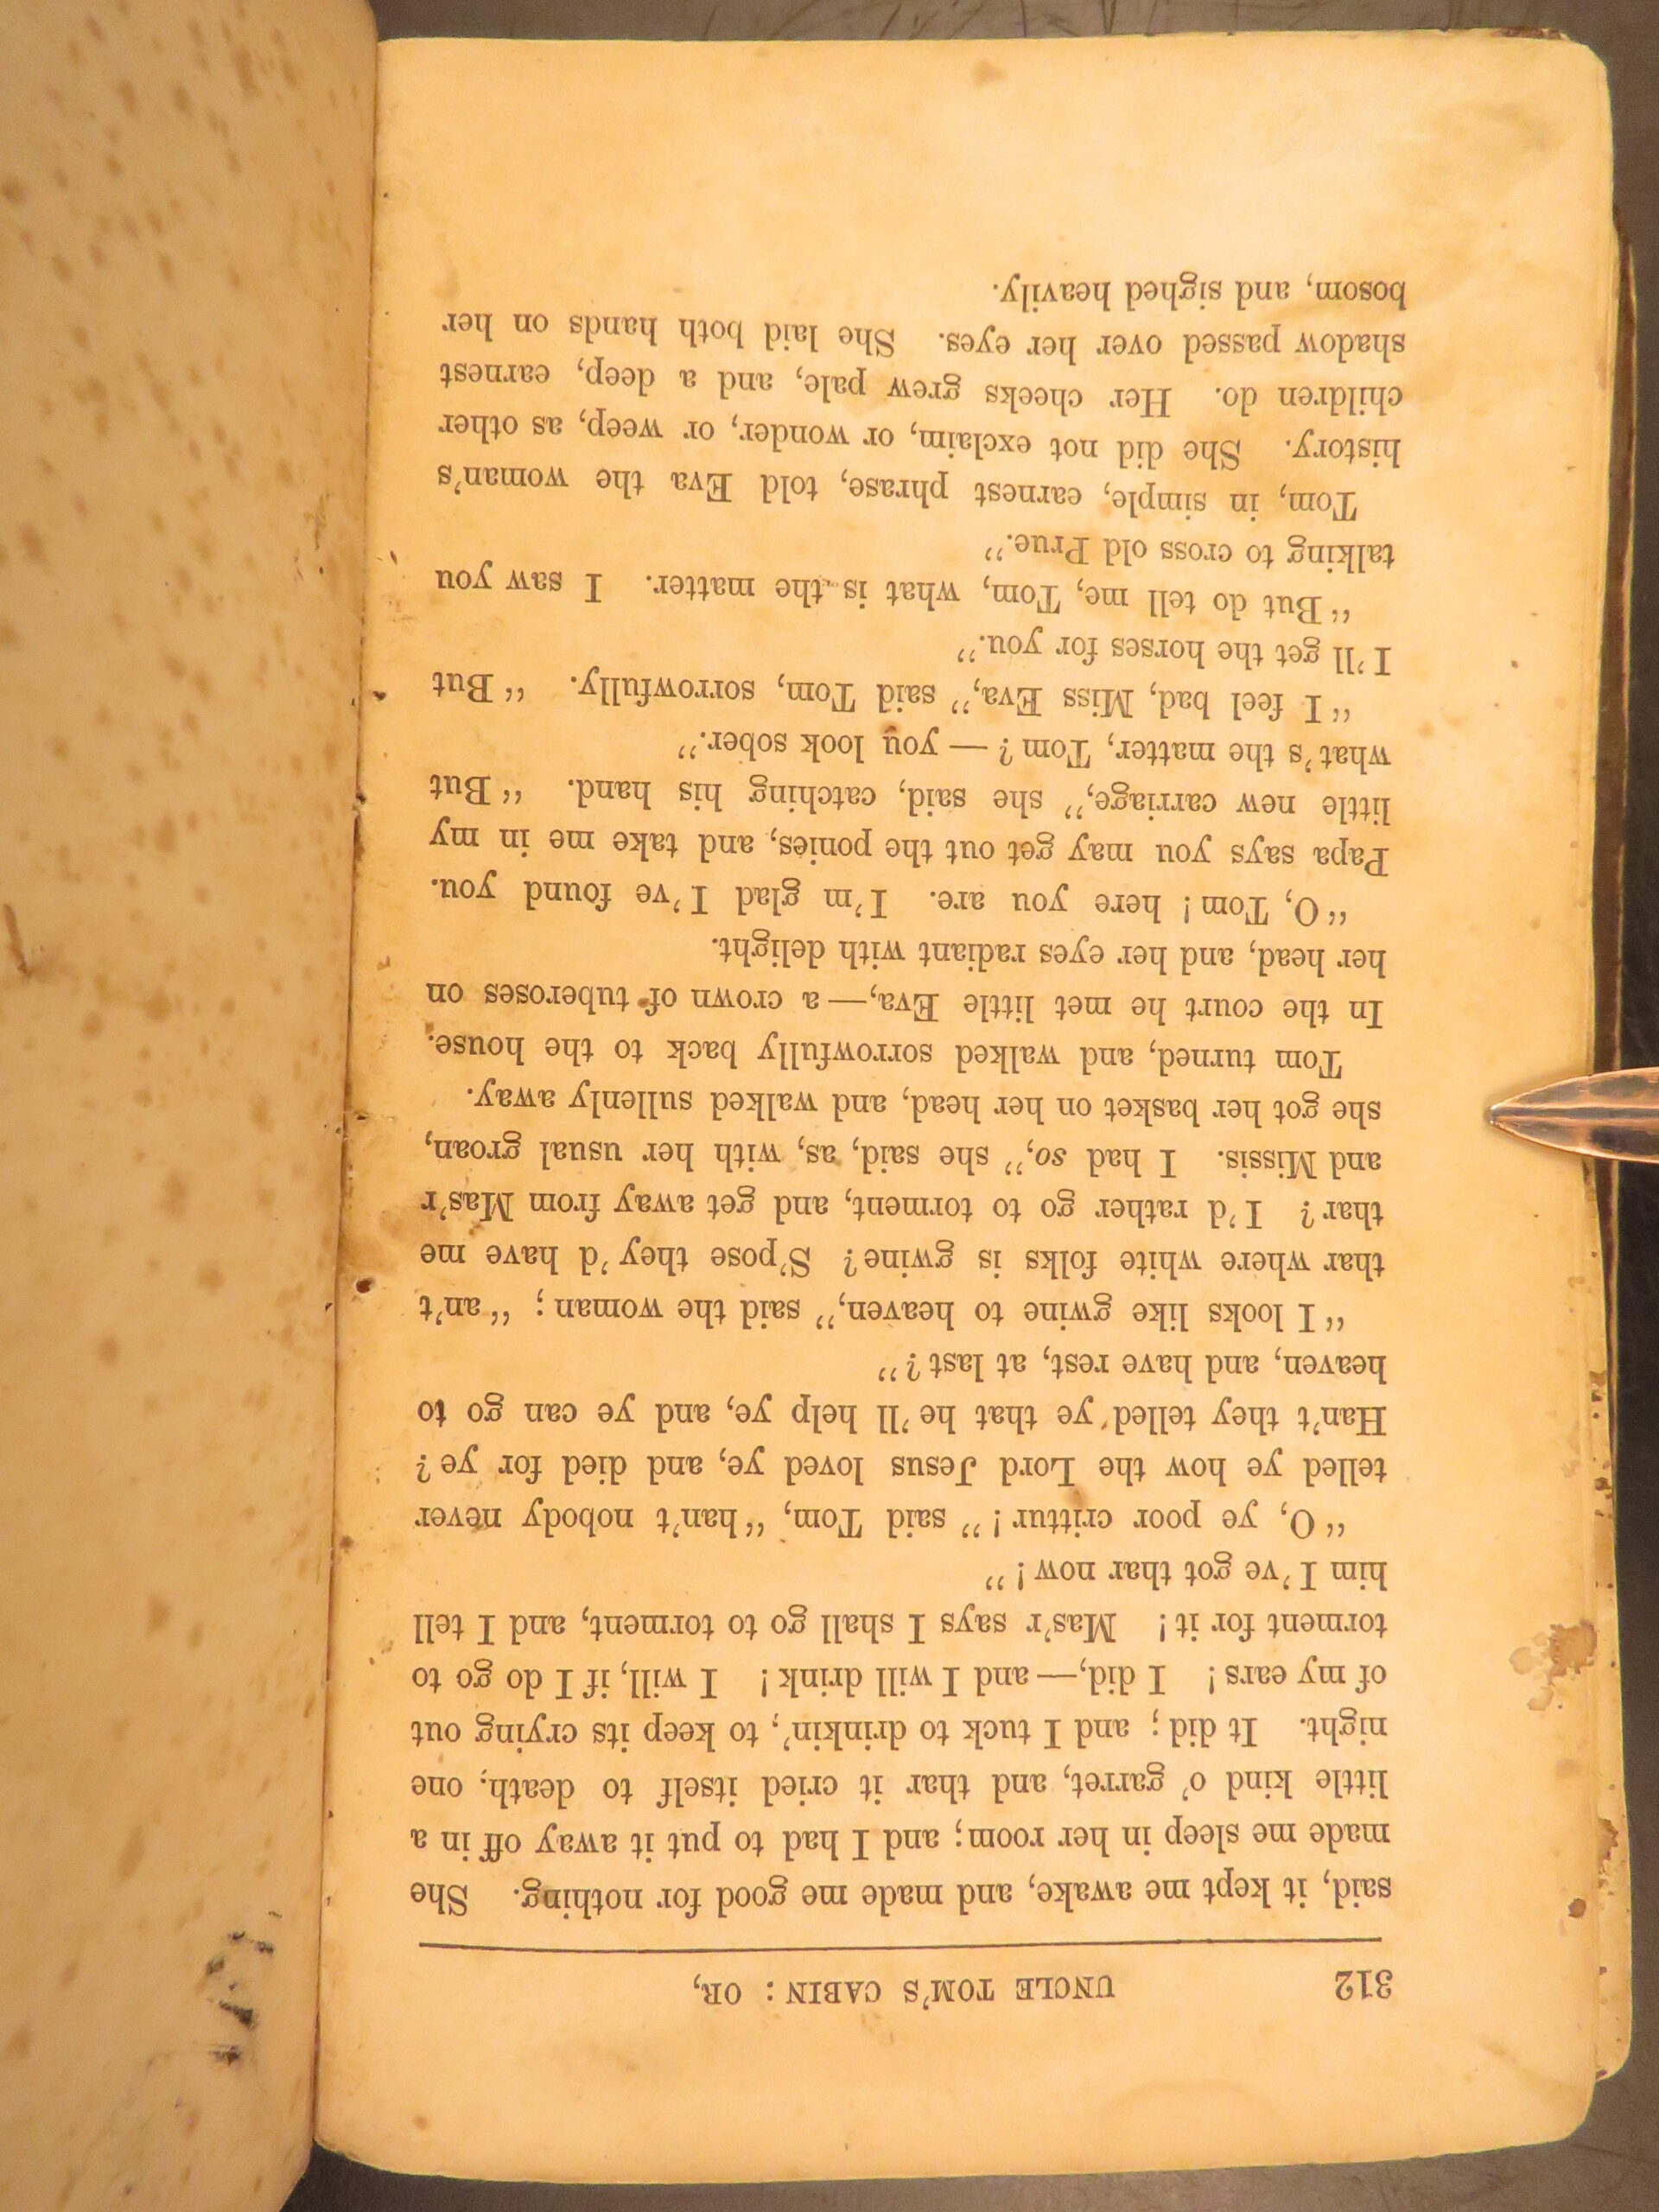 312 UNCLE TOM'S CABIN : OR,
said, it kept me awake, and made me good for nothing. She
made me sleep in her room; and I had to put it away off in a
little kind o' garret, and thar it cried itself to death, one
night. It did; and I tuck to drinkin', to keep its crying out
of my ears! I did,—and I will drink! I will, if I do go to
torment for it! Mas'r says I shall go to torment, and I tell
him I've got thar now!”
“O, ye poor crittur!” said Tom, “han't nobody never
telled ye how the Lord Jesus loved ye, and died for ye?
Han't they telled ye that he'll help ye, and ye can go to
heaven, and have rest, at last?”
“I looks like gwine to heaven,” said the woman; “an't
thar where white folks is gwine? S'pose they'd have me
thar? I'd rather go to torment, and get away from Mas'r
and Missis. I had so,” she said, as, with her usual groan,
she got her basket on her head, and walked sullenly away.
Tom turned, and walked sorrowfully back to the house.
In the court he met little Eva,—a crown of tuberoses on
her head, and her eyes radiant with delight.
“O, Tom! here you are. I'm glad I've found you.
Papa says you may get out the ponies, and take me in my
little new carriage,” she said, catching his hand. “But
what's the matter, Tom?—you look sober.”
“I feel bad, Miss Eva,” said Tom, sorrowfully. “But
I'll get the horses for you.”
“But do tell me, Tom, what is the matter. I saw you
talking to cross old Prue.”
Tom, in simple, earnest phrase, told Eva the woman's
history. She did not exclaim, or wonder, or weep, as other
children do. Her cheeks grew pale, and a deep, earnest
shadow passed over her eyes. She laid both hands on her
bosom, and sighed heavily.